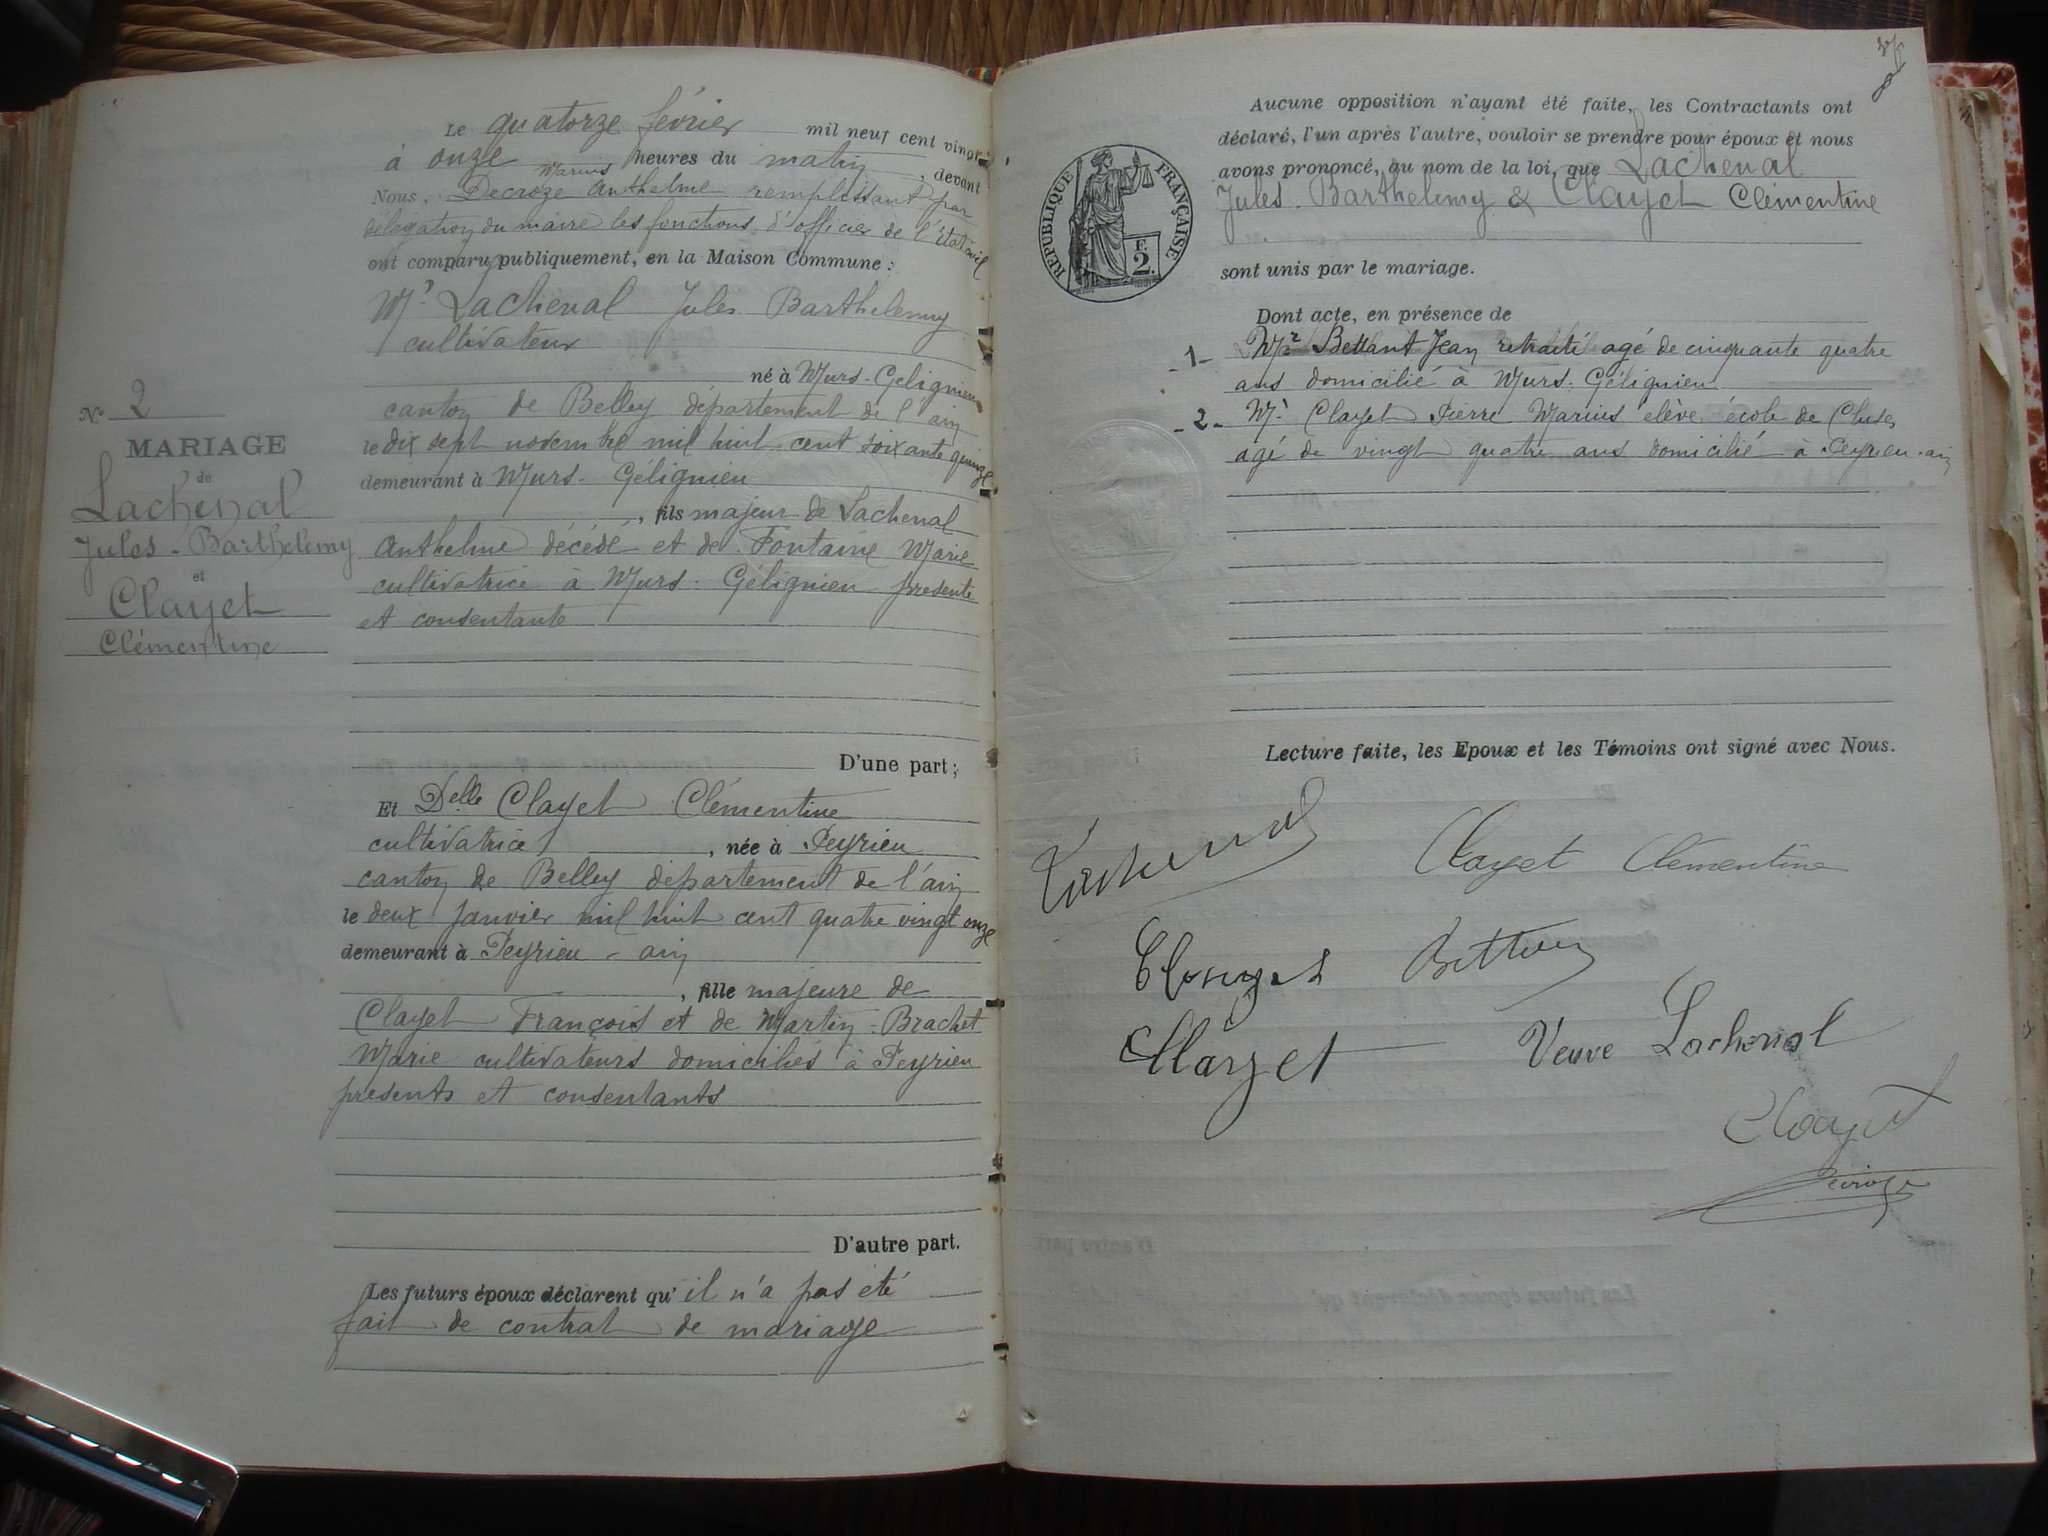 Le quatorze février mil neuf cent vingt
à onze heures du matin, devant
Marius
Nous, Decroze Anthelme remplissant par
délégation du maire les fonctions d'officier de l'état civil
ont comparu publiquement, en la Maison Commune :
Mr Lachenal Jules Barthelemy
cultivateur
né à Murs-Gélignieu
canton de Belley département de l'ain
le dix sept novembre mil huit cent soixante quinze
demeurant à Murs-Gélignieu
, fils majeur de Lachenal
Anthelme décédé et de Fontaine Marie
cultivatrice à Murs-Gélignieu presente
et consentante
D'une part ;
Et Delle Clayet Clémentine
cultivatrice, née à Peyrieu
canton de Belley département de l'ain
le deux janvier mil huit cent quatre vingt onze
demeurant à Peyrieu - ain
, fille majeure de
Clayet François et de Martin-Brachet
Marie cultivateurs domiciliés à Peyrieu
presents et consentants
D'autre part.
Les futurs époux déclarent qu'il n'a pas été
fait de contrat de mariage
No 2
MARIAGE
de
Lachenal
Jules-Barthelemy
et
Clayet
Clémentine
RÉPUBLIQUE FRANÇAISE
F.
2.
Aucune opposition n'ayant été faite, les Contractants ont
déclaré, l'un après l'autre, vouloir se prendre pour époux et nous
avons prononcé, au nom de la loi, que Lachenal
Jules Barthelemy & Clayet Clémentine
sont unis par le mariage.
Dont acte, en présence de
-1- Mr Bettant Jean retraité agé de cinquante quatre
ans domicilié à Murs-Gélignieu
-2- Mr Clayet Pierre Marius elève école de Cluses
agé de vingt quatre ans domicilié à Peyrieu-ain
Lecture faite, les Epoux et les Témoins ont signé avec Nous.
Lachenal
Clayet Clémentine
Bettant
Veuve Lachenal
Clayet
Decroze